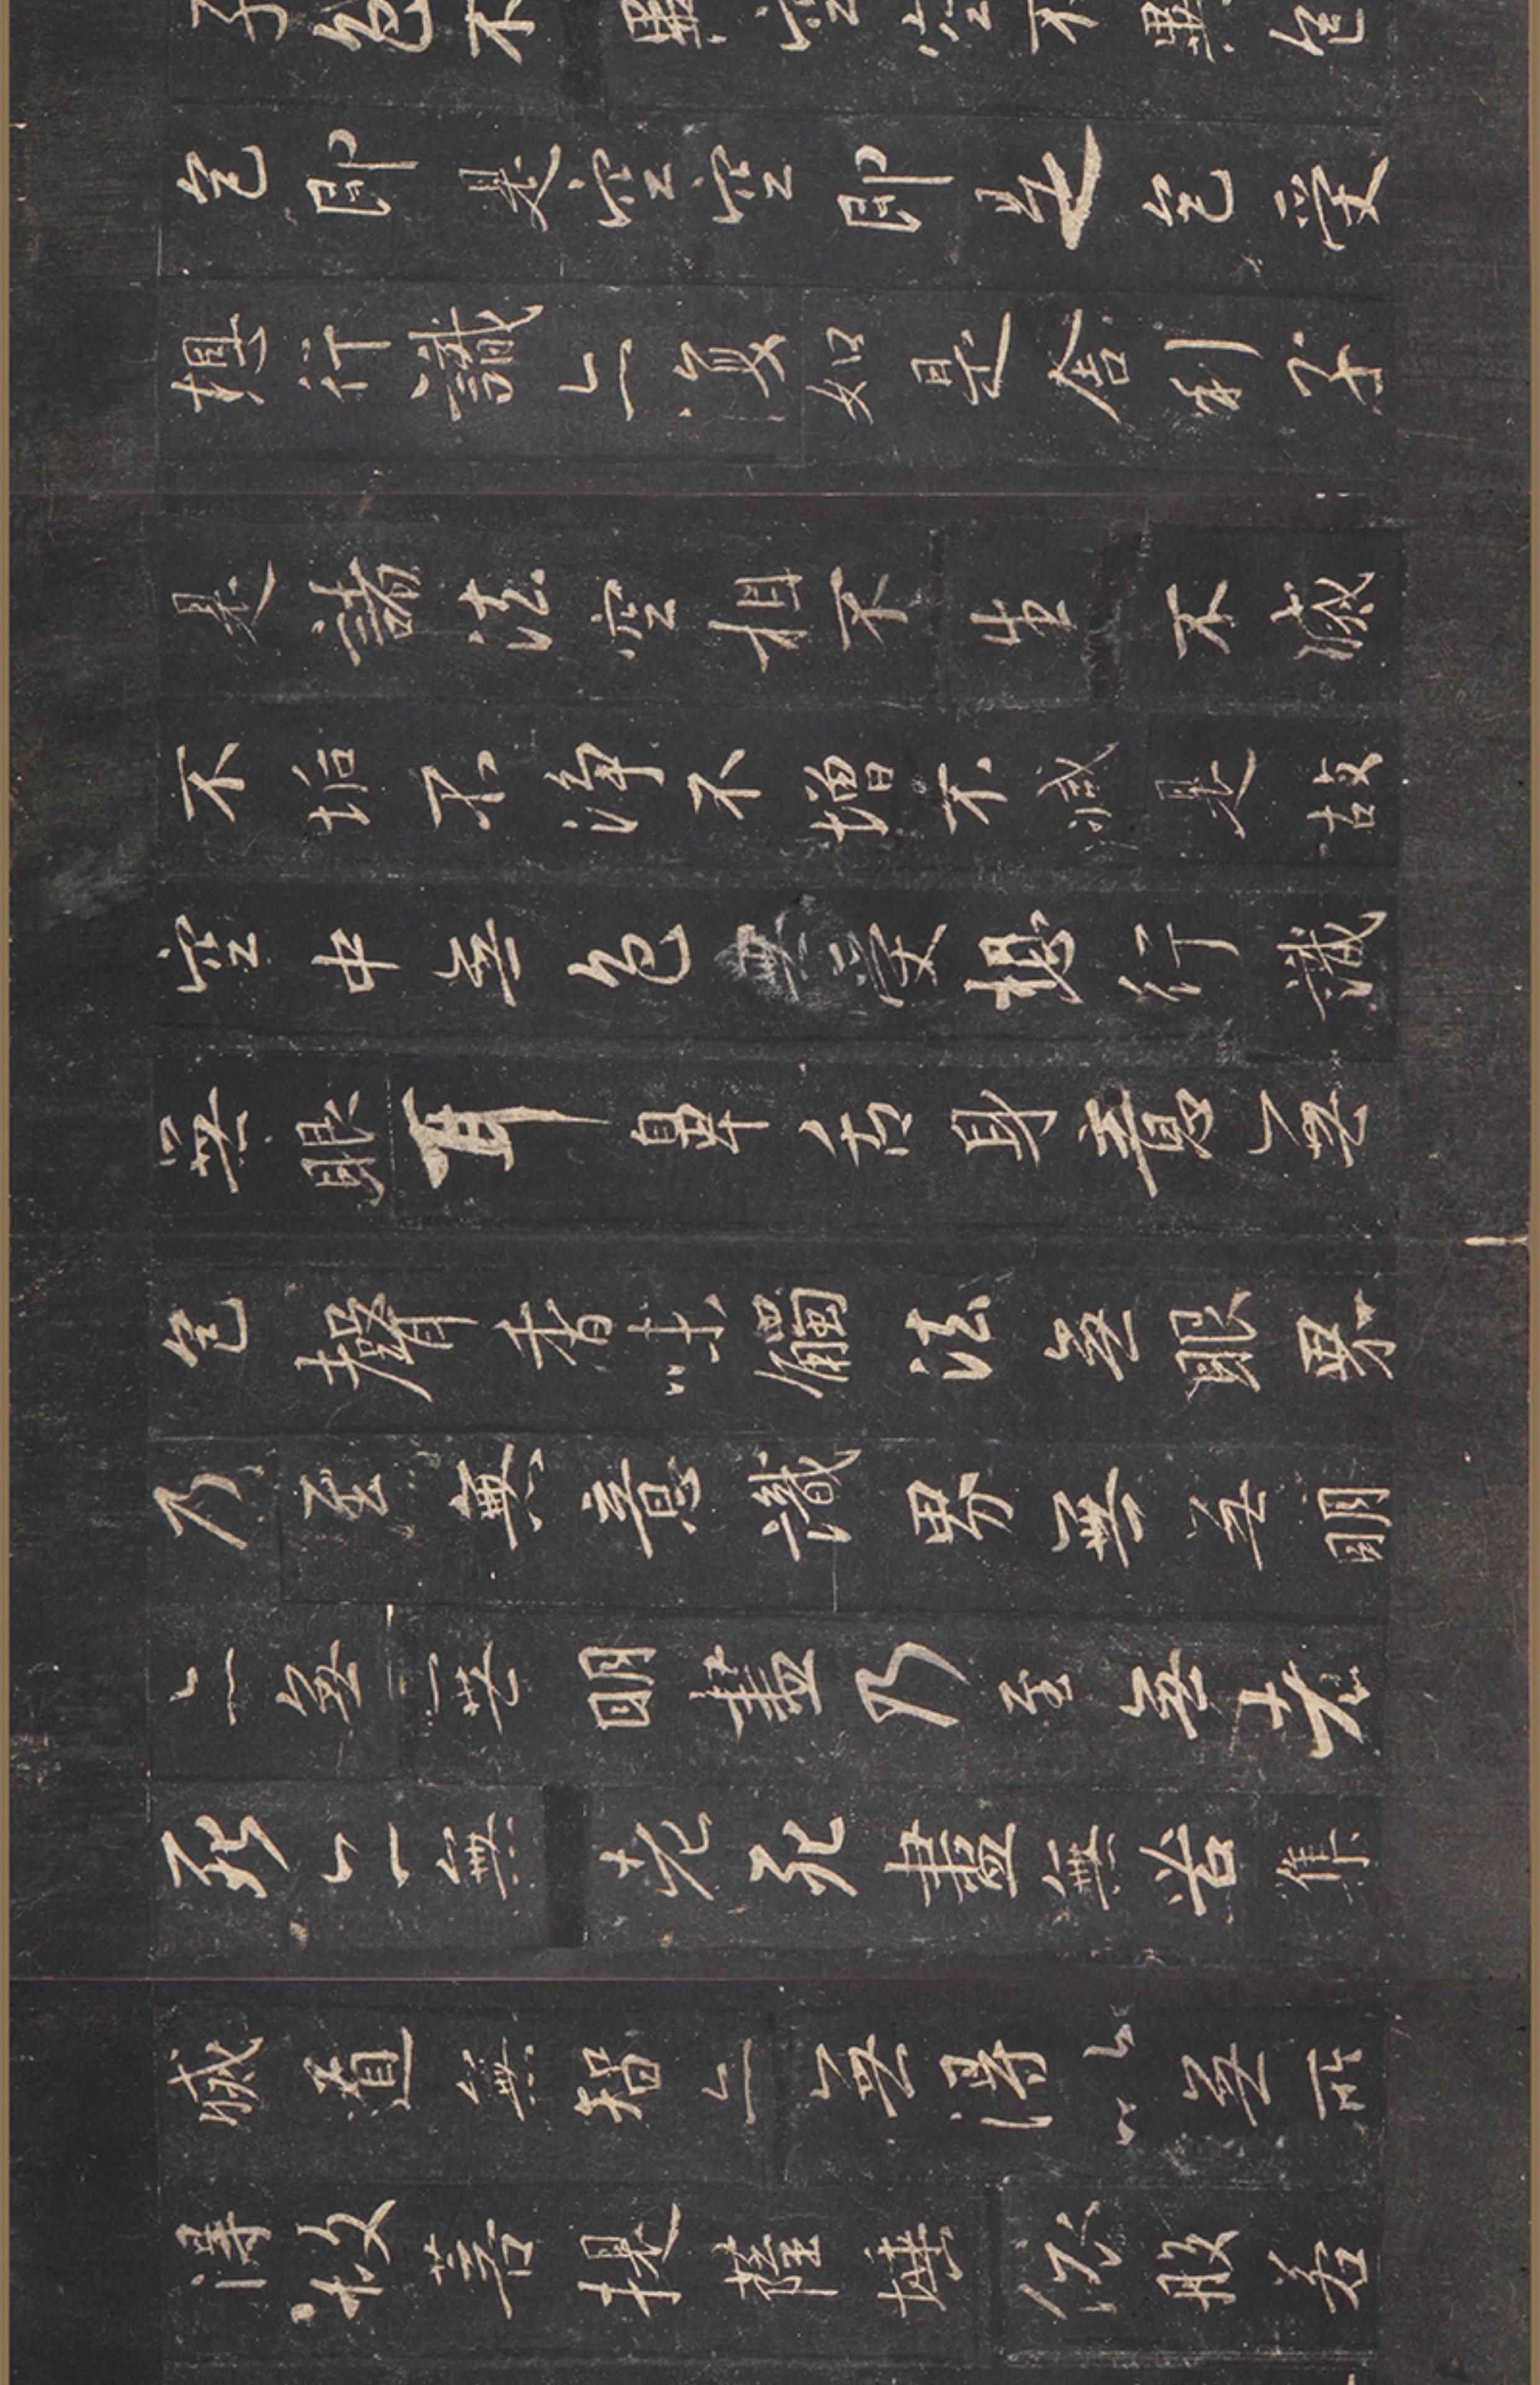 子色不異空空不異色
色即是空空即是色受
想行識亦復如是舍利子
是諸法空相不生不滅
不垢不淨不增不減是故
空中無色無受想行識
無眼耳鼻舌身意無
色聲香味觸法無眼界
乃至無意識界無無明
亦無無明盡乃至無老
死亦無老死盡無苦集
滅道無智亦無得以無所
得故菩提薩埵依般若